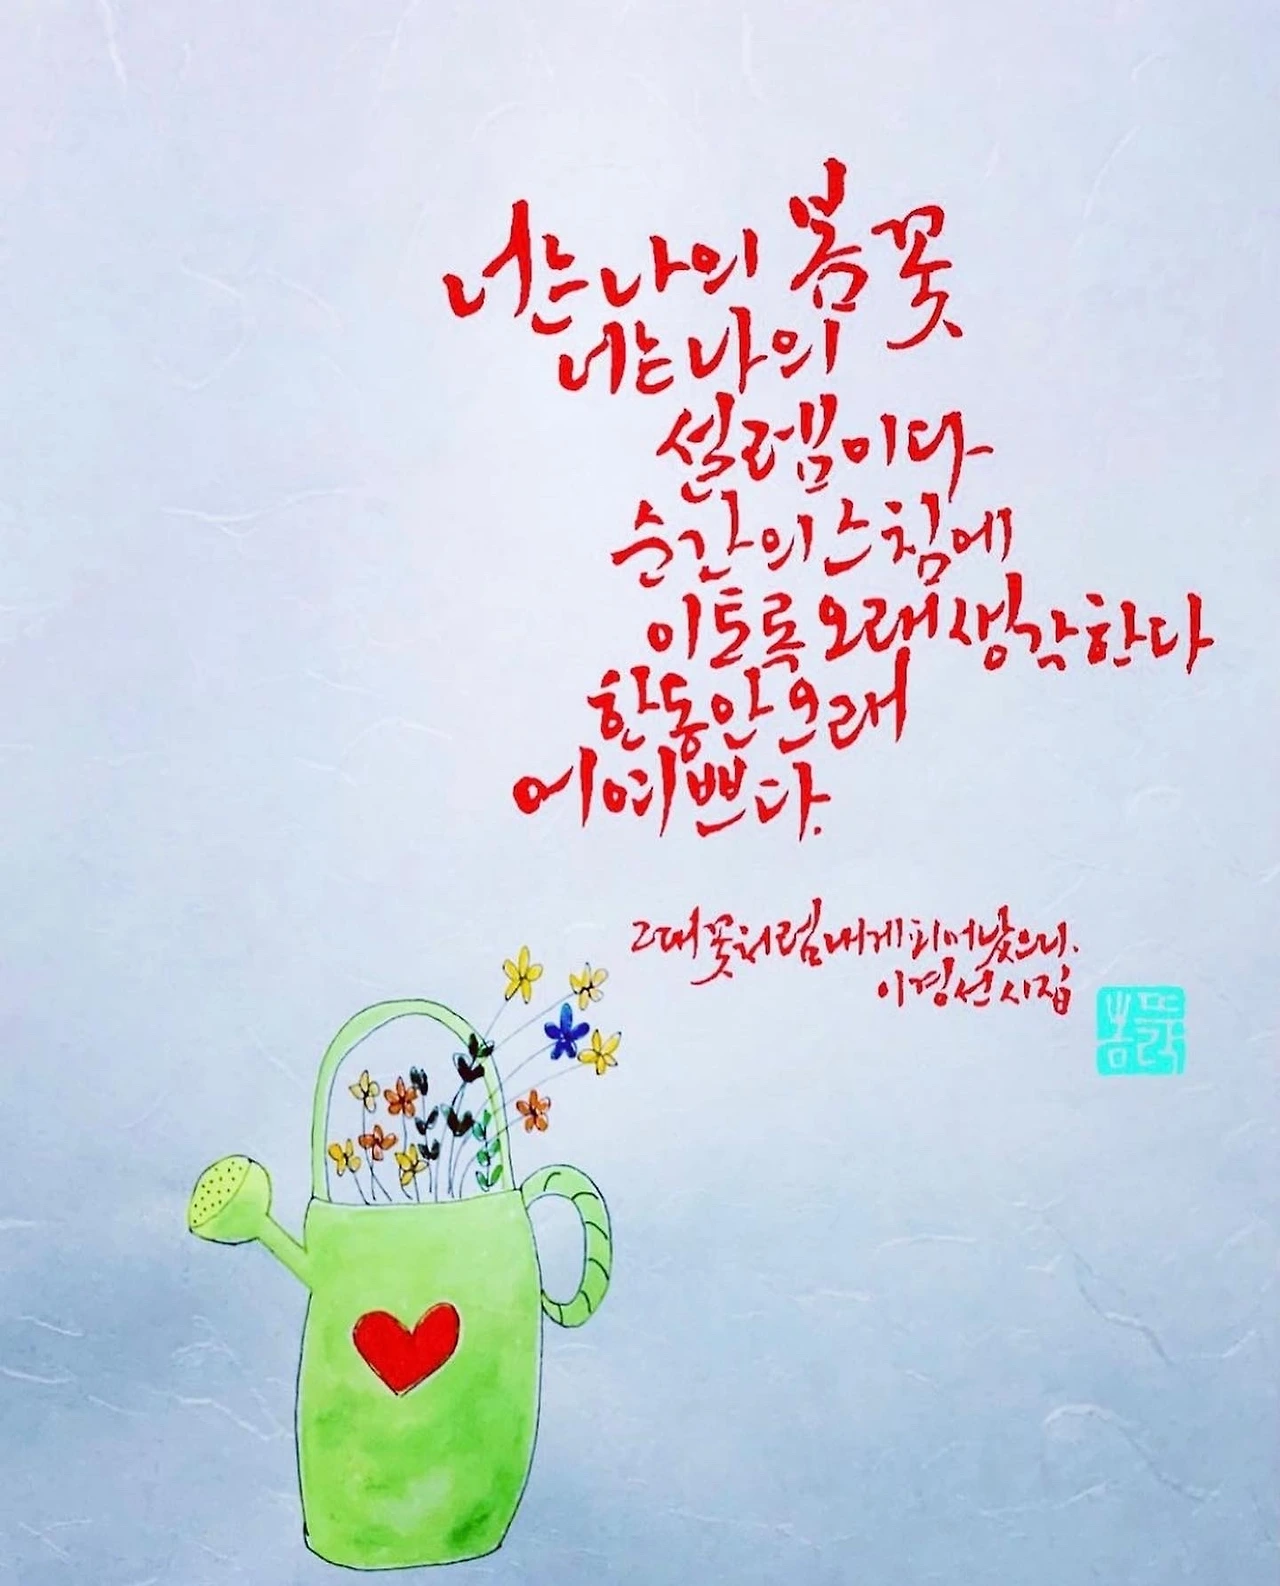 너는 나의 봄꽃
너는 나의
설렘이다
순간의 스침에
이토록 오래 생각한다
한동안 오래
어여쁘다.
그때 꽃처럼 내게 피어났으니.
이경선 시집